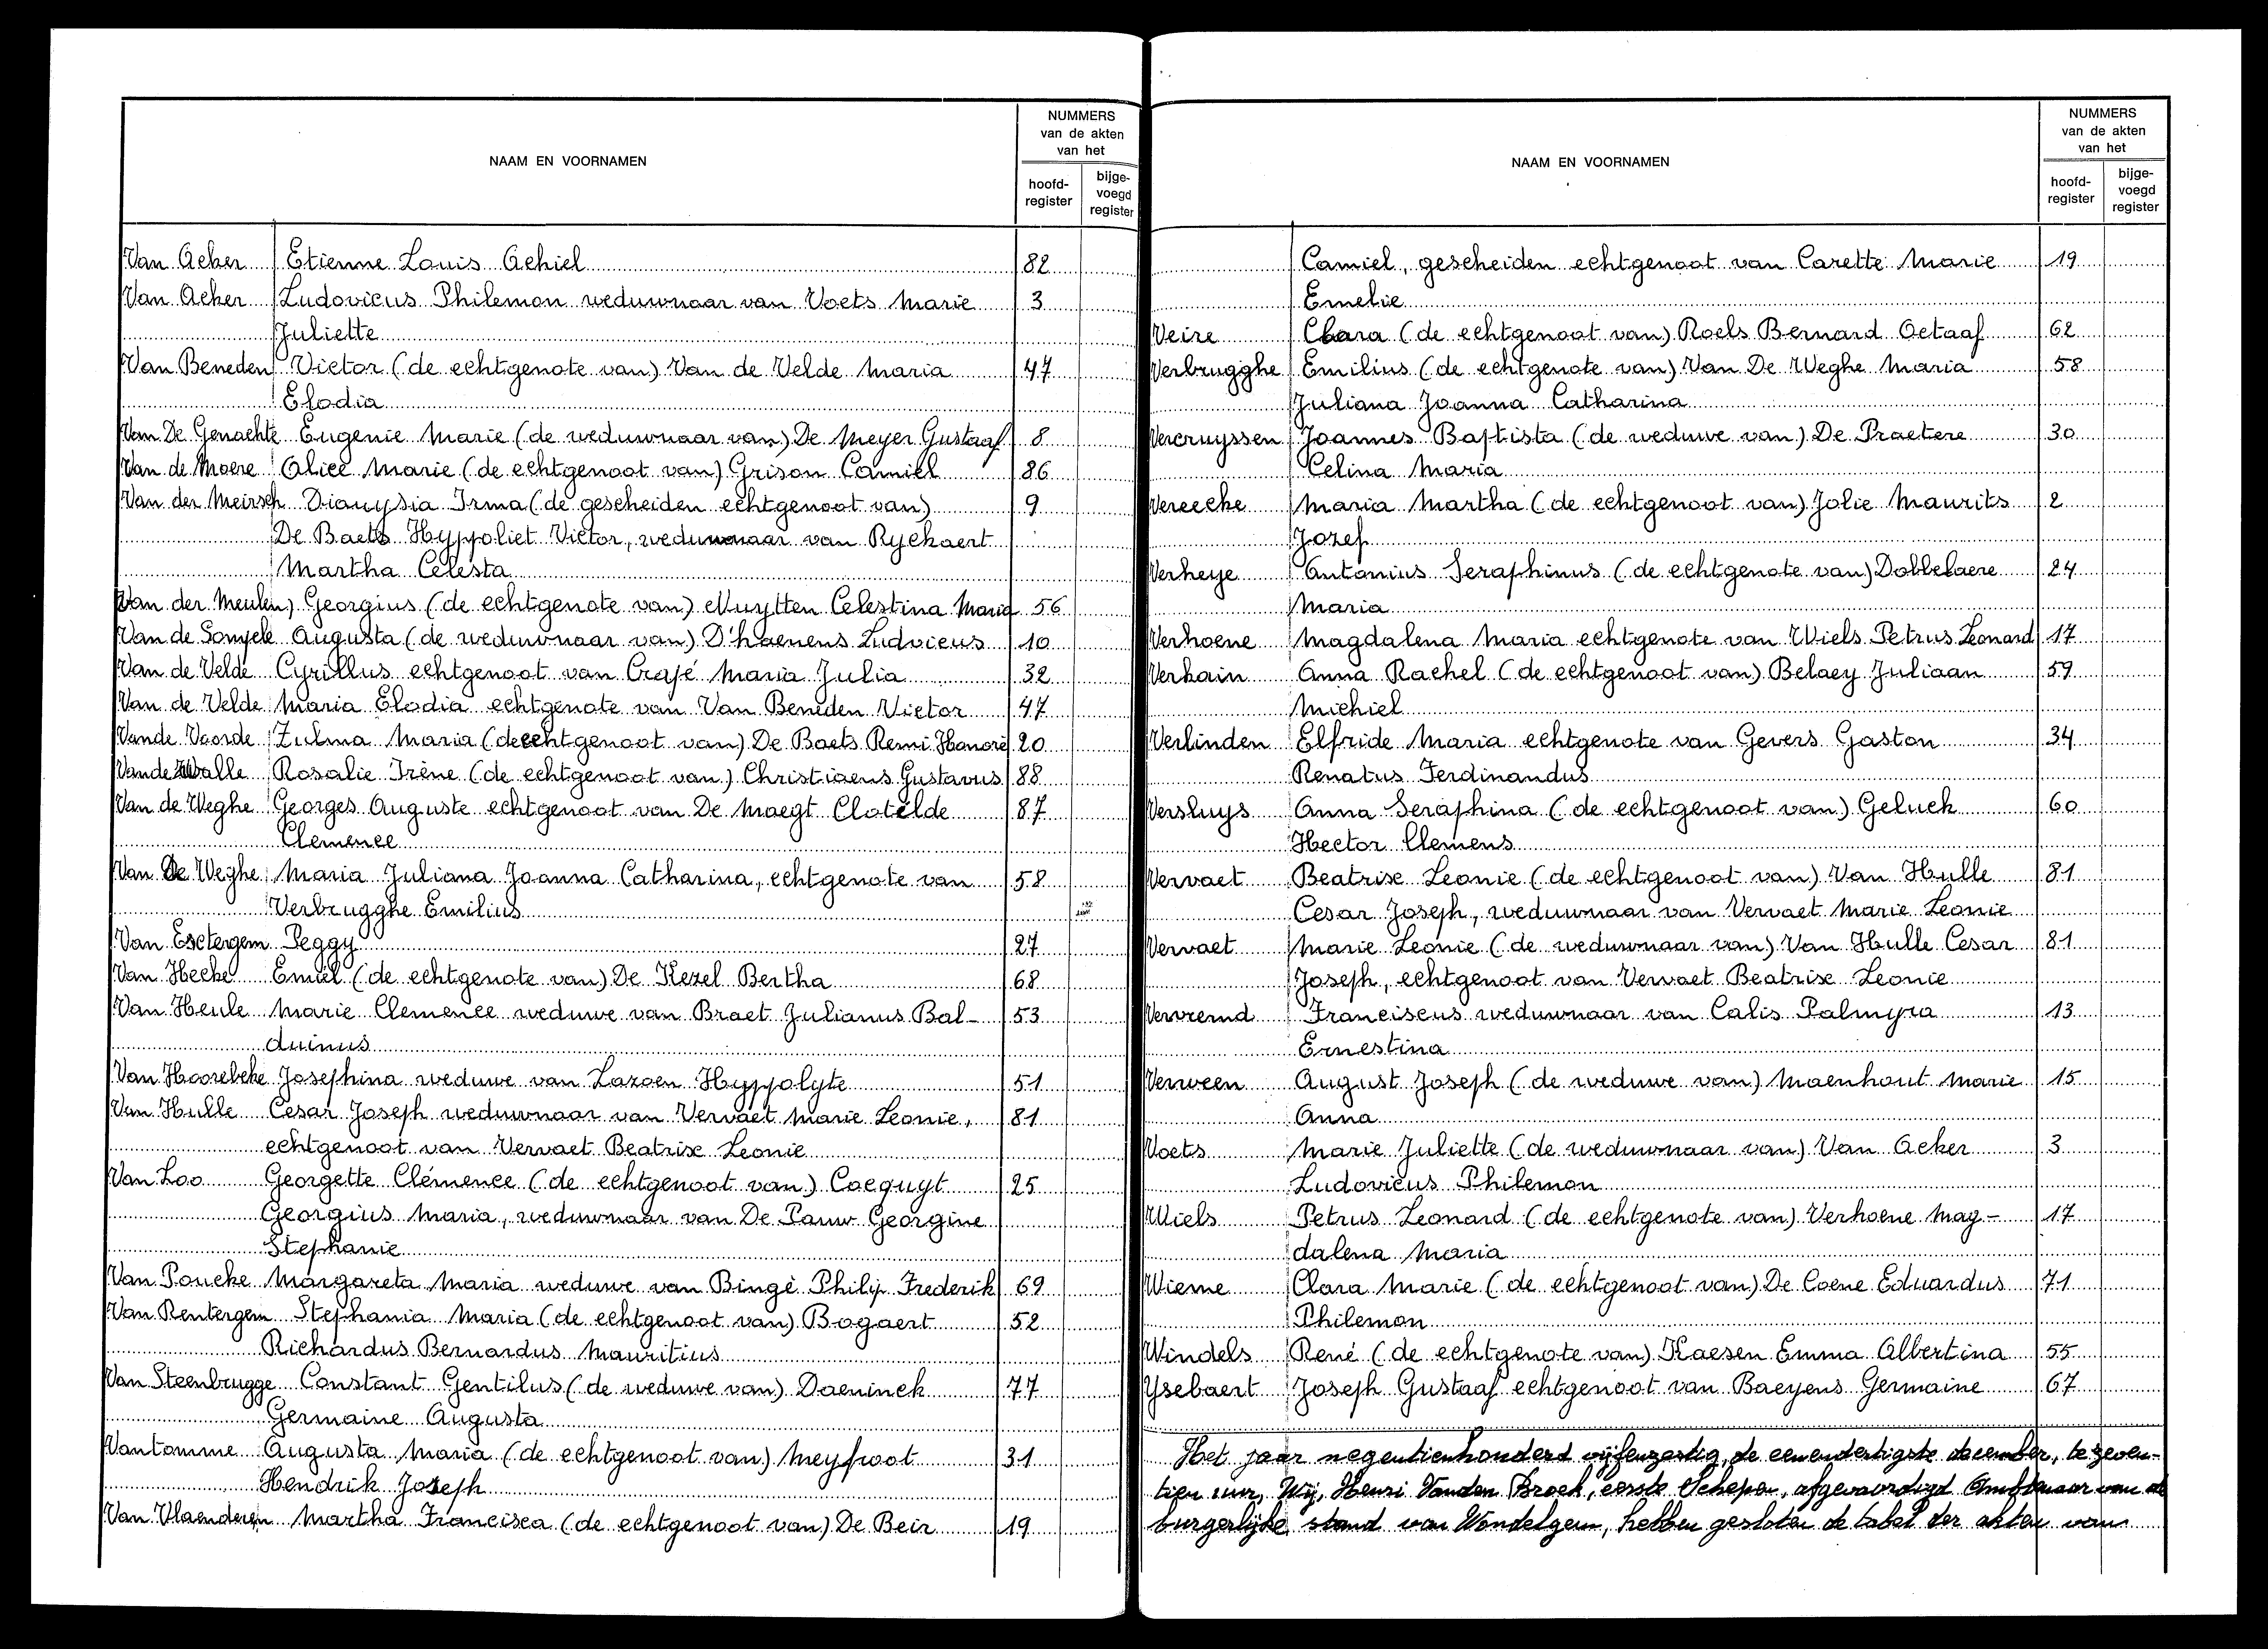 NAAM EN VOORNAMEN
NUMMERS
van de akten
van het
hoofd-
register
bijge-
voegd
register
Van Acker Etienne Louis Achiel 82
Van Acker Ludovicus Philemon weduwnaar van Voets Marie 3
Juliette
Van Beneden Victor (de echtgenote van) Van de Velde Maria 47
Elodia
Van De Genachte Eugenie Marie (de weduwnaar van) De Meyer Gustaaf 8
Van de Moere Alice Marie (de echtgenoot van) Grison Camiel 86
Van der Meirsch Dionysia Irma (de gescheiden echtgenoot van) 9
De Baets Hyppoliet Victor, weduwnaar van Ryckaert
Martha Celesta
Van der Meulen Georgius (de echtgenote van) Nuytten Celestina Maria 56
Van de Sompele Augusta (de weduwnaar van) D'haenens Ludvicus 10
Van de Velde Cyrillus echtgenoot van Crajé Maria Julia 32
Van de Velde Maria Elodia echtgenote van Van Beneden Victor 47
Vande Voorde Zulma Maria (de echtgenoot van) De Baets Remi Honoré 20
Vande Walle Rosalie Irène (de echtgenoot van) Christiaens Gustavus 88
Van de Weghe Georges Auguste echtgenoot van De Maegt Clotilde 87
Clemence
Van De Weghe Maria Juliana Joanna Catharina, echtgenote van 58
Verbrugghe Emilius
Van Esctergem Peggy 27
Van Hecke Emiel (de echtgenote van) De Kezel Bertha 68
Van Heule Marie Clemence weduwe van Braet Julianus Bal- 53
duinus
Van Hoorebeke Josephina weduwe van Lazoen Hyppolyte 51
Van Hulle Cesar Joseph weduwnaar van Vervaet Marie Leonie, 81
echtgenoot van Vervaet Beatrix Leonie
Van Loo Georgette Clémence (de echtgenoot van) Cocquyt 25
Georgius Maria, weduwnaar van De Pauw Georgine
Stephanie
Van Poucke Margareta Maria weduwe van Bingé Philip Frederik 69
Van Rentergem Stephania Maria (de echtgenoot van) Bogaert 52
Richardus Bernardus Mauritius
Van Steenbrugge Constant Gentilus (de weduwe van) Daeninck 77
Germaine Augusta
Vantomme Augusta Maria (de echtgenoot van) Meyfroot 31
Hendrik Joseph
Van Vlaenderen Martha Francisca (de echtgenoot van) De Beir 19
NAAM EN VOORNAMEN
NUMMERS
van de akten
van het
hoofd-
register
bijge-
voegd
register
Camiel, gescheiden echtgenoot van Carette Marie 19
Emelie
Veire Clara (de echtgenoot van) Roels Bernard Octaaf 62
Verbrugghe Emilius (de echtgenote van) Van De Weghe Maria 58
Juliana Joanna Catharina
Vercruyssen Joannes Baptista (de weduwe van) De Praetere 30
Celina Maria
Vereecke Maria Martha (de echtgenoot van) Jolie Maurits 2
Jozef
Verheye Antonius Seraphinus (de echtgenote van) Dobbelaere 24
Maria
Verhoene Magdalena Maria echtgenote van Wiels Petrus Leonard 17
Verkain Anna Rachel (de echtgenoot van) Belaey Juliaan 59
Michiel
Verlinden Elfride Maria echtgenote van Gevers Gaston 34
Renatus Ferdinandus
Versluys Anna Seraphina (de echtgenoot van) Geluck 60
Hector Clemens
Vervaet Beatrix Leonie (de echtgenoot van) Van Hulle 81
Cesar Joseph, weduwnaar van Vervaet Marie Leonie
Vervaet Marie Leonie (de weduwnaar van) Van Hulle Cesar 81
Joseph, echtgenoot van Vervaet Beatrix Leonie
Vervremd Franciscus weduwnaar van Calis Palmyra 13
Ernestina
Verween August Joseph (de weduwe van) Maenhout Marie 15
Anna
Voets Marie Juliette (de weduwnaar van) Van Acker 3
Ludovicus Philemon
Wiels Petrus Leonard (de echtgenote van) Verhoene Mag- 17
dalena Maria
Wieme Clara Marie (de echtgenoot van) De Coene Eduardus 71
Philemon
Windels René (de echtgenote van) Kaesen Emma Albertina 55
Ysebaert Joseph Gustaaf echtgenoot van Baeyens Germaine 67
Het jaar negentienhonderd vijfenzestig, de eenendertigste december, te zeven-
tien uur, Wij, Henri Vanden Broek, eerste Schepen, afgevaardigd Ambtenaar van de
burgerlijke stand van Wondelgem, hebben gesloten de tabel der akten van